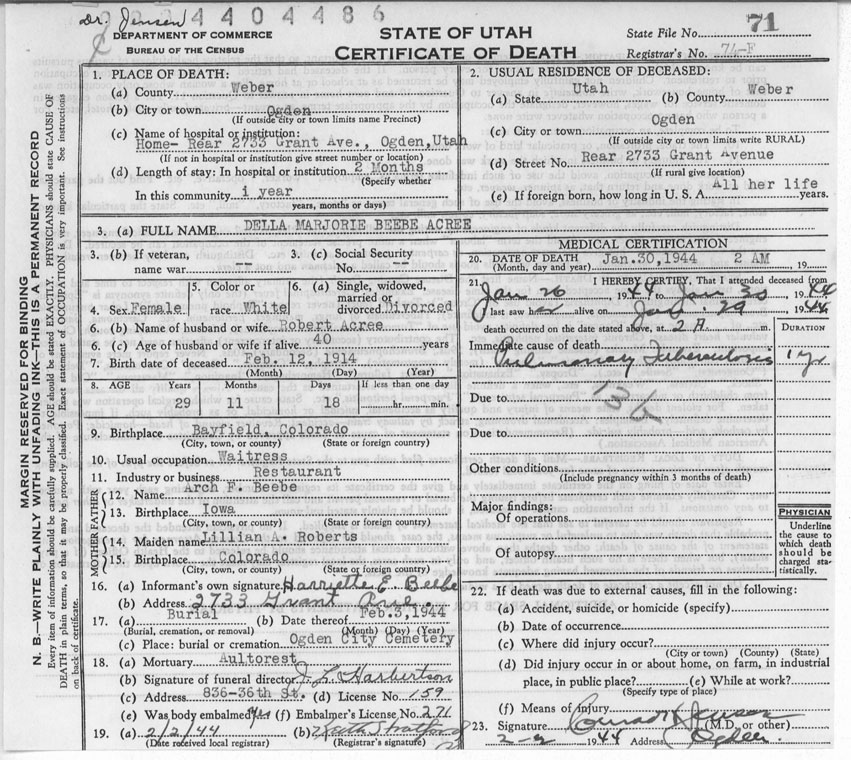 Dr. Jensen 4404486
DEPARTMENT OF COMMERCE
BUREAU OF THE CENSUS
STATE OF UTAH
CERTIFICATE OF DEATH
State File No. 71
Registrar's No. 74-F
MARGIN RESERVED FOR BINDING
N. B.—WRITE PLAINLY WITH UNFADING INK—THIS IS A PERMANENT RECORD
Every item of information should be carefully supplied. AGE should be stated EXACTLY. PHYSICIANS should state CAUSE OF
DEATH in plain terms, so that it may be properly classified. Exact statement of OCCUPATION is very important. See instructions
on back of certificate.
1. PLACE OF DEATH:
(a) County Weber
(b) City or town Ogden
(If outside city or town limits name Precinct)
(c) Name of hospital or institution:
Home- Rear 2733 Grant Ave., Ogden,Utah
(If not in hospital or institution give street number or location)
(d) Length of stay: In hospital or institution 2 Months
(Specify whether
In this community 1 year
years, months or days)
2. USUAL RESIDENCE OF DECEASED:
(a) State Utah (b) County Weber
(c) City or town Ogden
(If outside city or town limits write RURAL)
(d) Street No. Rear 2733 Grant Avenue
(If rural give location)
(e) If foreign born, how long in U. S. A. All her life years.
3. (a) FULL NAME DELLA MARJORIE BEEBE ACREE
3. (b) If veteran,
name war --
3. (c) Social Security
No. --
4. Sex Female
5. Color or
race White
6. (a) Single, widowed,
married or
divorced Divorced
6. (b) Name of husband or wife Robert Acree
6. (c) Age of husband or wife if alive 40 years
7. Birth date of deceased Feb. 12, 1914
(Month) (Day) (Year)
8. AGE Years Months Days If less than one day
29 11 18 hr. min.
9. Birthplace Bayfield, Colorado
(City, town, or county) (State or foreign country)
10. Usual occupation Waitress
11. Industry or business Restaurant
FATHER
12. Name Arch F. Beebe
13. Birthplace Iowa
(City, town, or county) (State or foreign country)
MOTHER
14. Maiden name Lillian A. Roberts
15. Birthplace Colorado
(City, town, or county) (State or foreign country)
16. (a) Informant's own signature Harriette E. Beebe
(b) Address 2733 Grant Ave.
17. (a) Burial (b) Date thereof Feb.3,1944
(Burial, cremation, or removal) (Month) (Day) (Year)
(c) Place: burial or cremation Ogden City Cemetery
18. (a) Mortuary Aultorest
(b) Signature of funeral director J. L. Harbertson
(c) Address 836-36th St. (d) License No. 159
(e) Was body embalmed Yes (f) Embalmer's License No. 271
19. (a) 2/2/44 (b)
(Date received local registrar) (Registrar's signature)
MEDICAL CERTIFICATION
20. DATE OF DEATH Jan.30,1944 2 AM
(Month, day and year) , 19
21. I HEREBY CERTIFY, That I attended deceased from
Jan 26, 1944 to Jan 30, 1944
last saw her alive on Jan. 29 1944
death occurred on the date stated above, at 2 A. m.
DURATION
Immediate cause of death
Pulmonary Tuberculosis 1 yr
Due to 13b
Due to
Other conditions
(Include pregnancy within 3 months of death)
Major findings:
Of operations
Of autopsy
PHYSICIAN
Underline
the cause to
which death
should be
charged sta-
tistically.
22. If death was due to external causes, fill in the following:
(a) Accident, suicide, or homicide (specify)
(b) Date of occurrence
(c) Where did injury occur?
(City or town) (County) (State)
(d) Did injury occur in or about home, on farm, in industrial
place, in public place? (e) While at work?
(Specify type of place)
(f) Means of injury
23. Signature Conrad Jenson (M.D. or other)
2-2 1944 Address Ogden